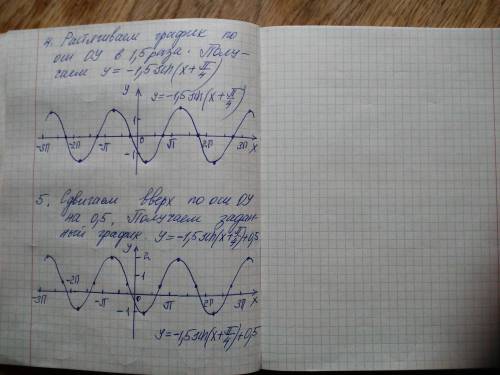 4. Растягиваем график по
оси OY в 1,5 раза. Полу-
чаем y=-1,5sin(x+π/4)
y=-1,5sin(x+π/4)
y
1
-3π -2π -π 0 π 2π 3π x
-1
5. Сдвигаем вверх по оси OY
на 0,5. Получаем задан-
ный график. y=-1,5sin(x+π/4)+0,5
y
2
1
-3π -2π -π 0 π 2π 3π x
-1
y=-1,5sin(x+π/4)+0,5